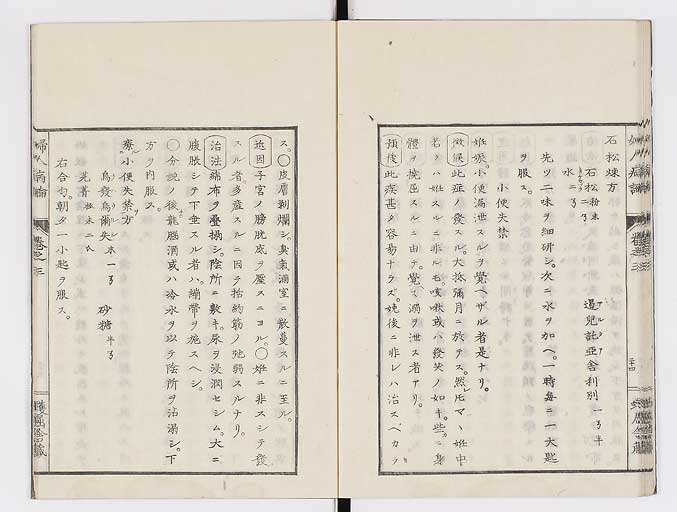 石松煉方
石松粉末 二ヲ 還児託亞舎利別 一ヲ半
水 二ヲ
先ツ二味ヲ細研シ。次ニ水ヲ加ヘ。一時毎ニ一大匙
ヲ服ス。
小便失禁
妊娠。小便漏泄スルヲ覺ヘザル者是ナリ。
徴候 此症ノ發スル。大抵彌月ニ於テス。然レ𪜈マヽ妊中
若クハ妊スルニ非ルモ。咳嗽或ハ發笑ノ如キ。些ニ身
體ヲ挨屈スルニ由テ。覺ヘス溺ヲ泄ス者アリ。
預後 此疾甚タ容易ナラズ。娩後ニ非レハ治スベカラ
ス。〇皮膚剥爛シ。臭氣滿室ニ散蔓スルニ至ル。
近因 子宮ノ膀胱底ヲ壓スニヨル。〇妊ニ非スシテ發
スル者。多産スルニ因テ括約筋ノ弛弱スルナリ。
治法 綿布ヲ疊摺シ。陰所ニ敷キ。尿ヲ浸潤セシム。大ニ
腹脹シテ下垂スル者ハ。繃帶ヲ施スヘシ。
〇分娩ノ後。龍腦酒或ハ冷水ヲ以テ陰所ヲ沾濕シ。下
方ヲ内服ス。
療小便失禁方
烏發烏爾矢 末一ヲ 砂糖 半ヲ
芫菁 極末二氏
右合匀。朝夕一小匙ヲ服ス。
婦人病論
卷之三